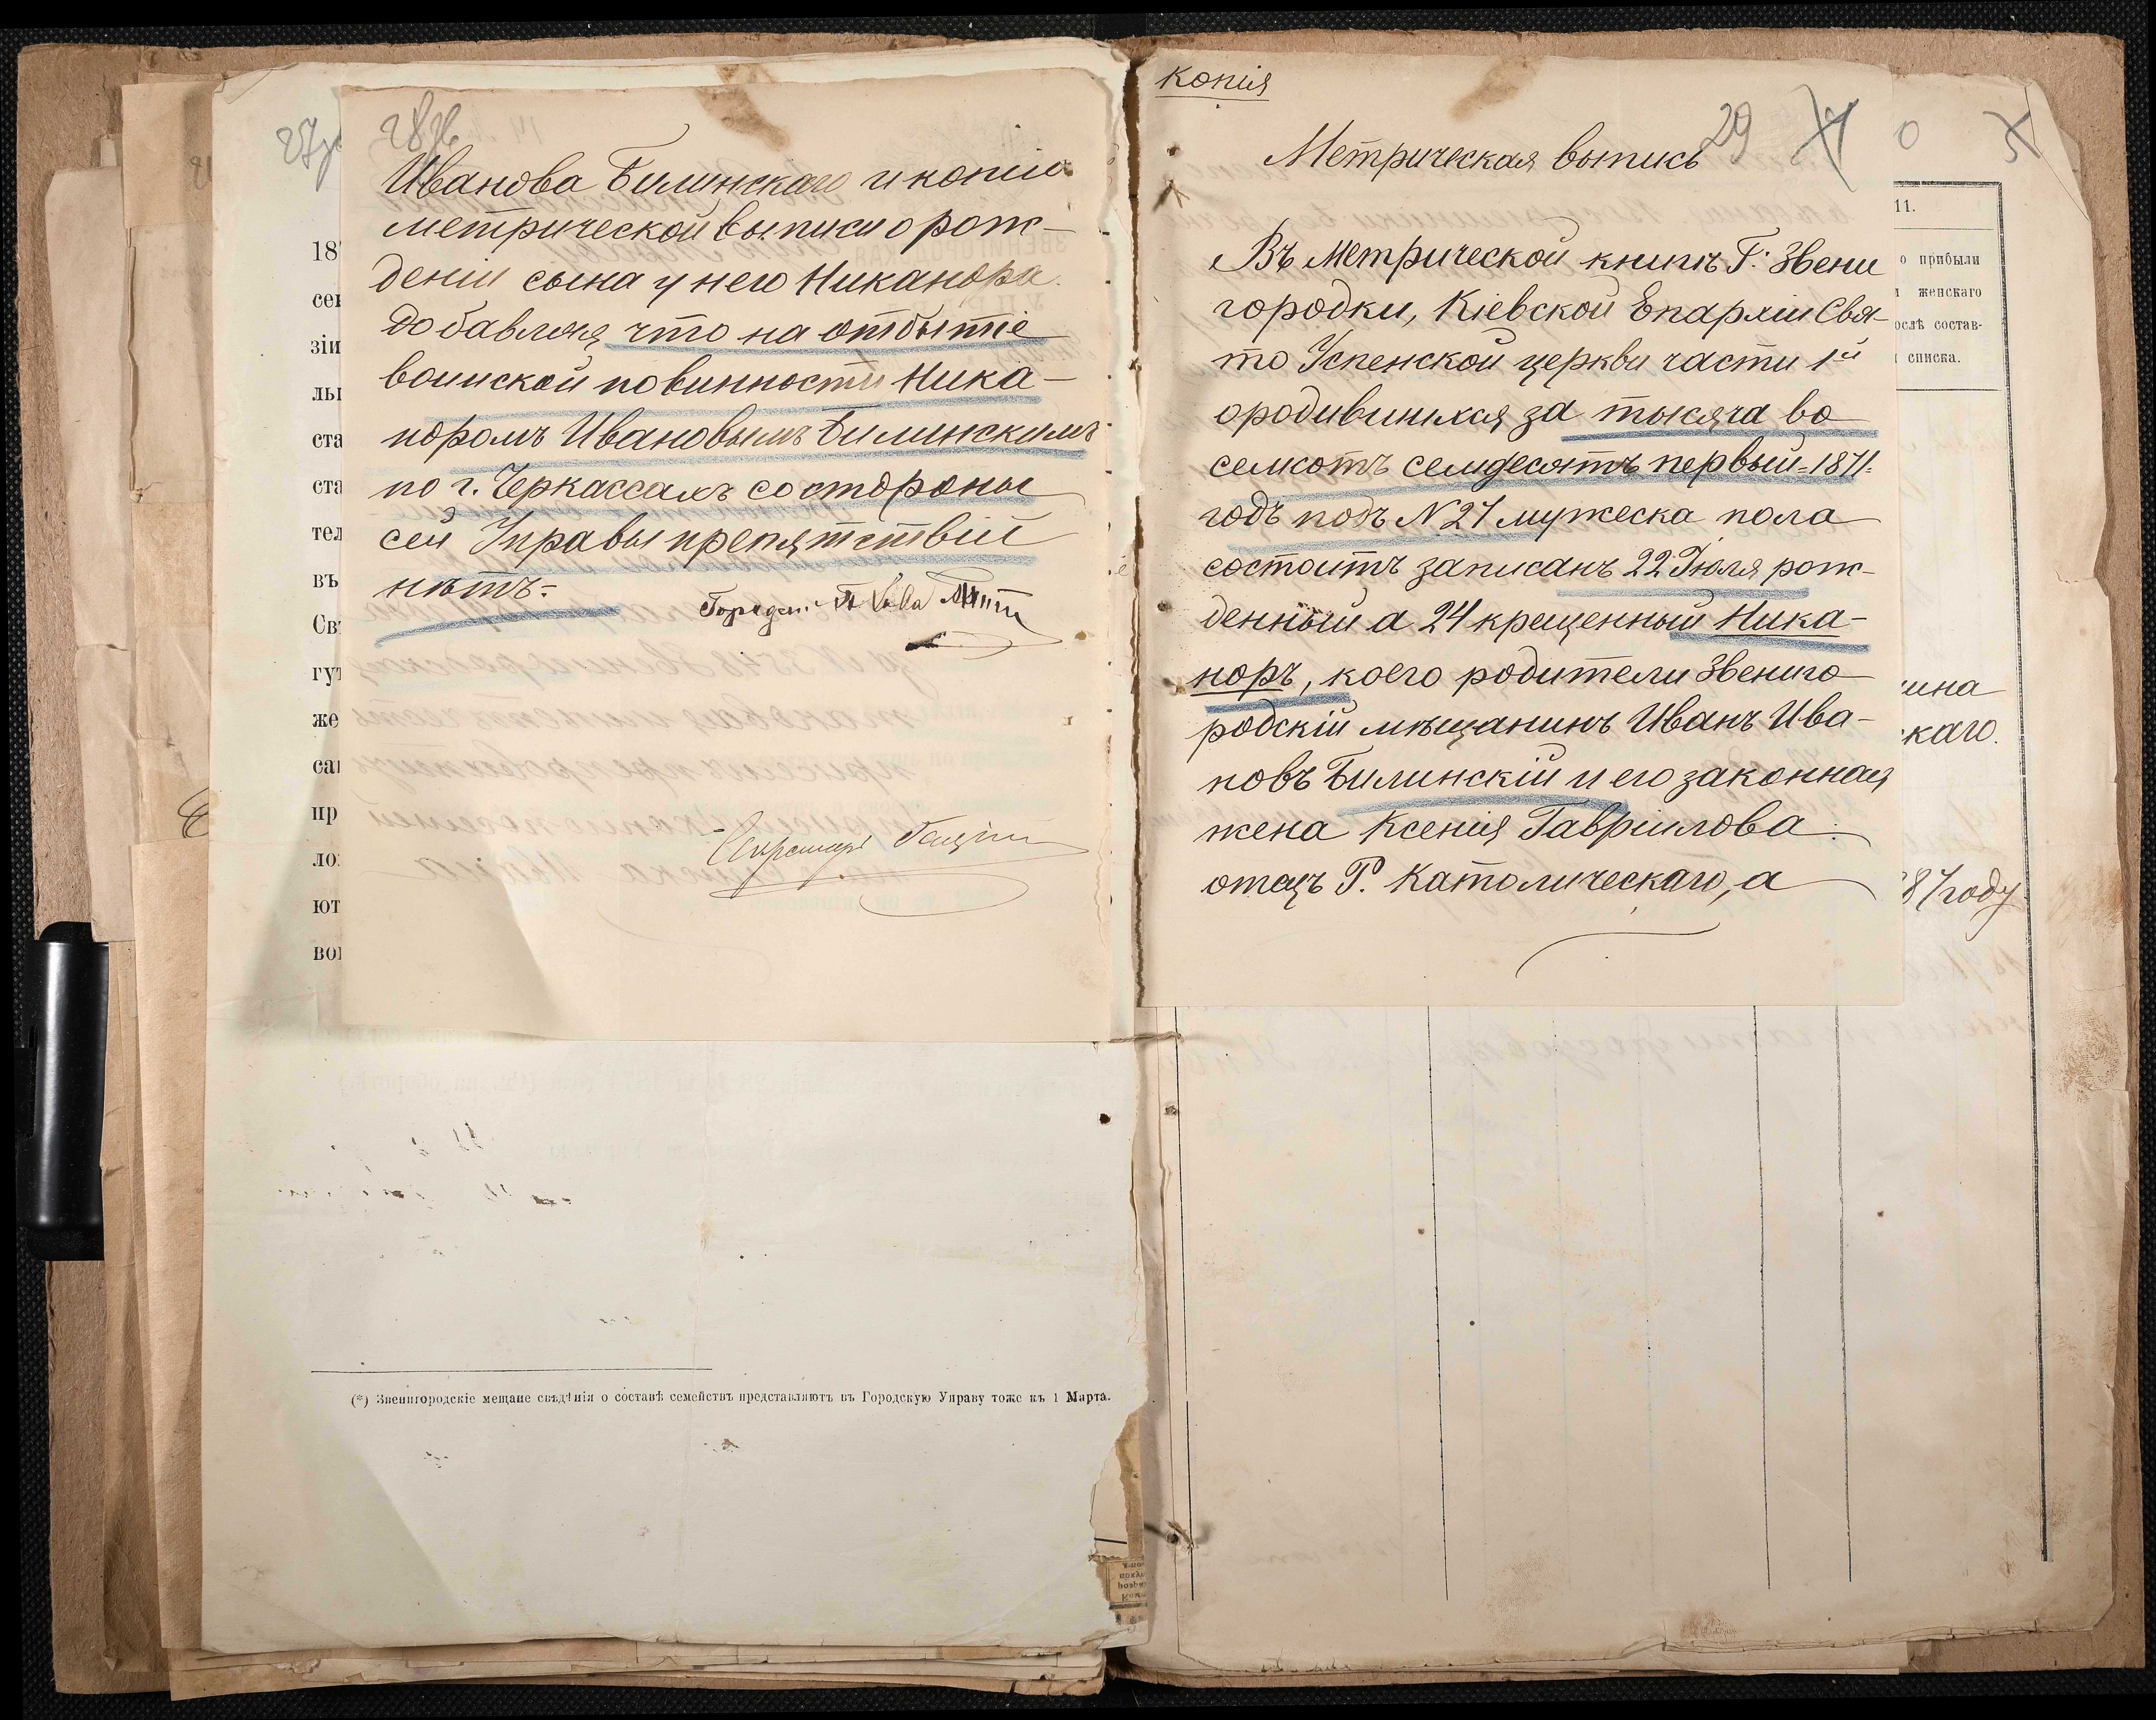 28об
Иванова Билинскаго и копію
метрической выписи о рож-
деніи сына у него Никанора.
добавляя что на отбытіе
воинской повинности Ника-
норомъ Ивановымъ Билинскимъ
по г. Черкассамъ состороны
сей Управы препятствій
нѣтъ.=
Секретарь
(*) Звенигородскіе мещане свѣдѣнія о составѣ семействъ представляютъ въ Городскую Управу тоже къ 1 Марта.
копія
29
Метрическая выпись
Въ Метрической книгѣ Г. Звени
городки, Кіевской Епархіи Свя-
то Успенской церкви части 1й
ородившихся за тысяча во
семсотъ семдесятъ первый=1871=
годъ подъ N 27 мужеска пола
состоитъ записанъ 22 Іюля рож-
денный а 24 крещенный Ника-
норъ, коего родители Звениго
родскій мѣщанинъ Иванъ Ива-
новъ Билинскій и его законная
жена Ксенія Гавриилова:
отецъ Р. Католическаго, а
11.
о прибыли
женскаго
ослѣ состав-
списка.
ина
скаго.
87 году